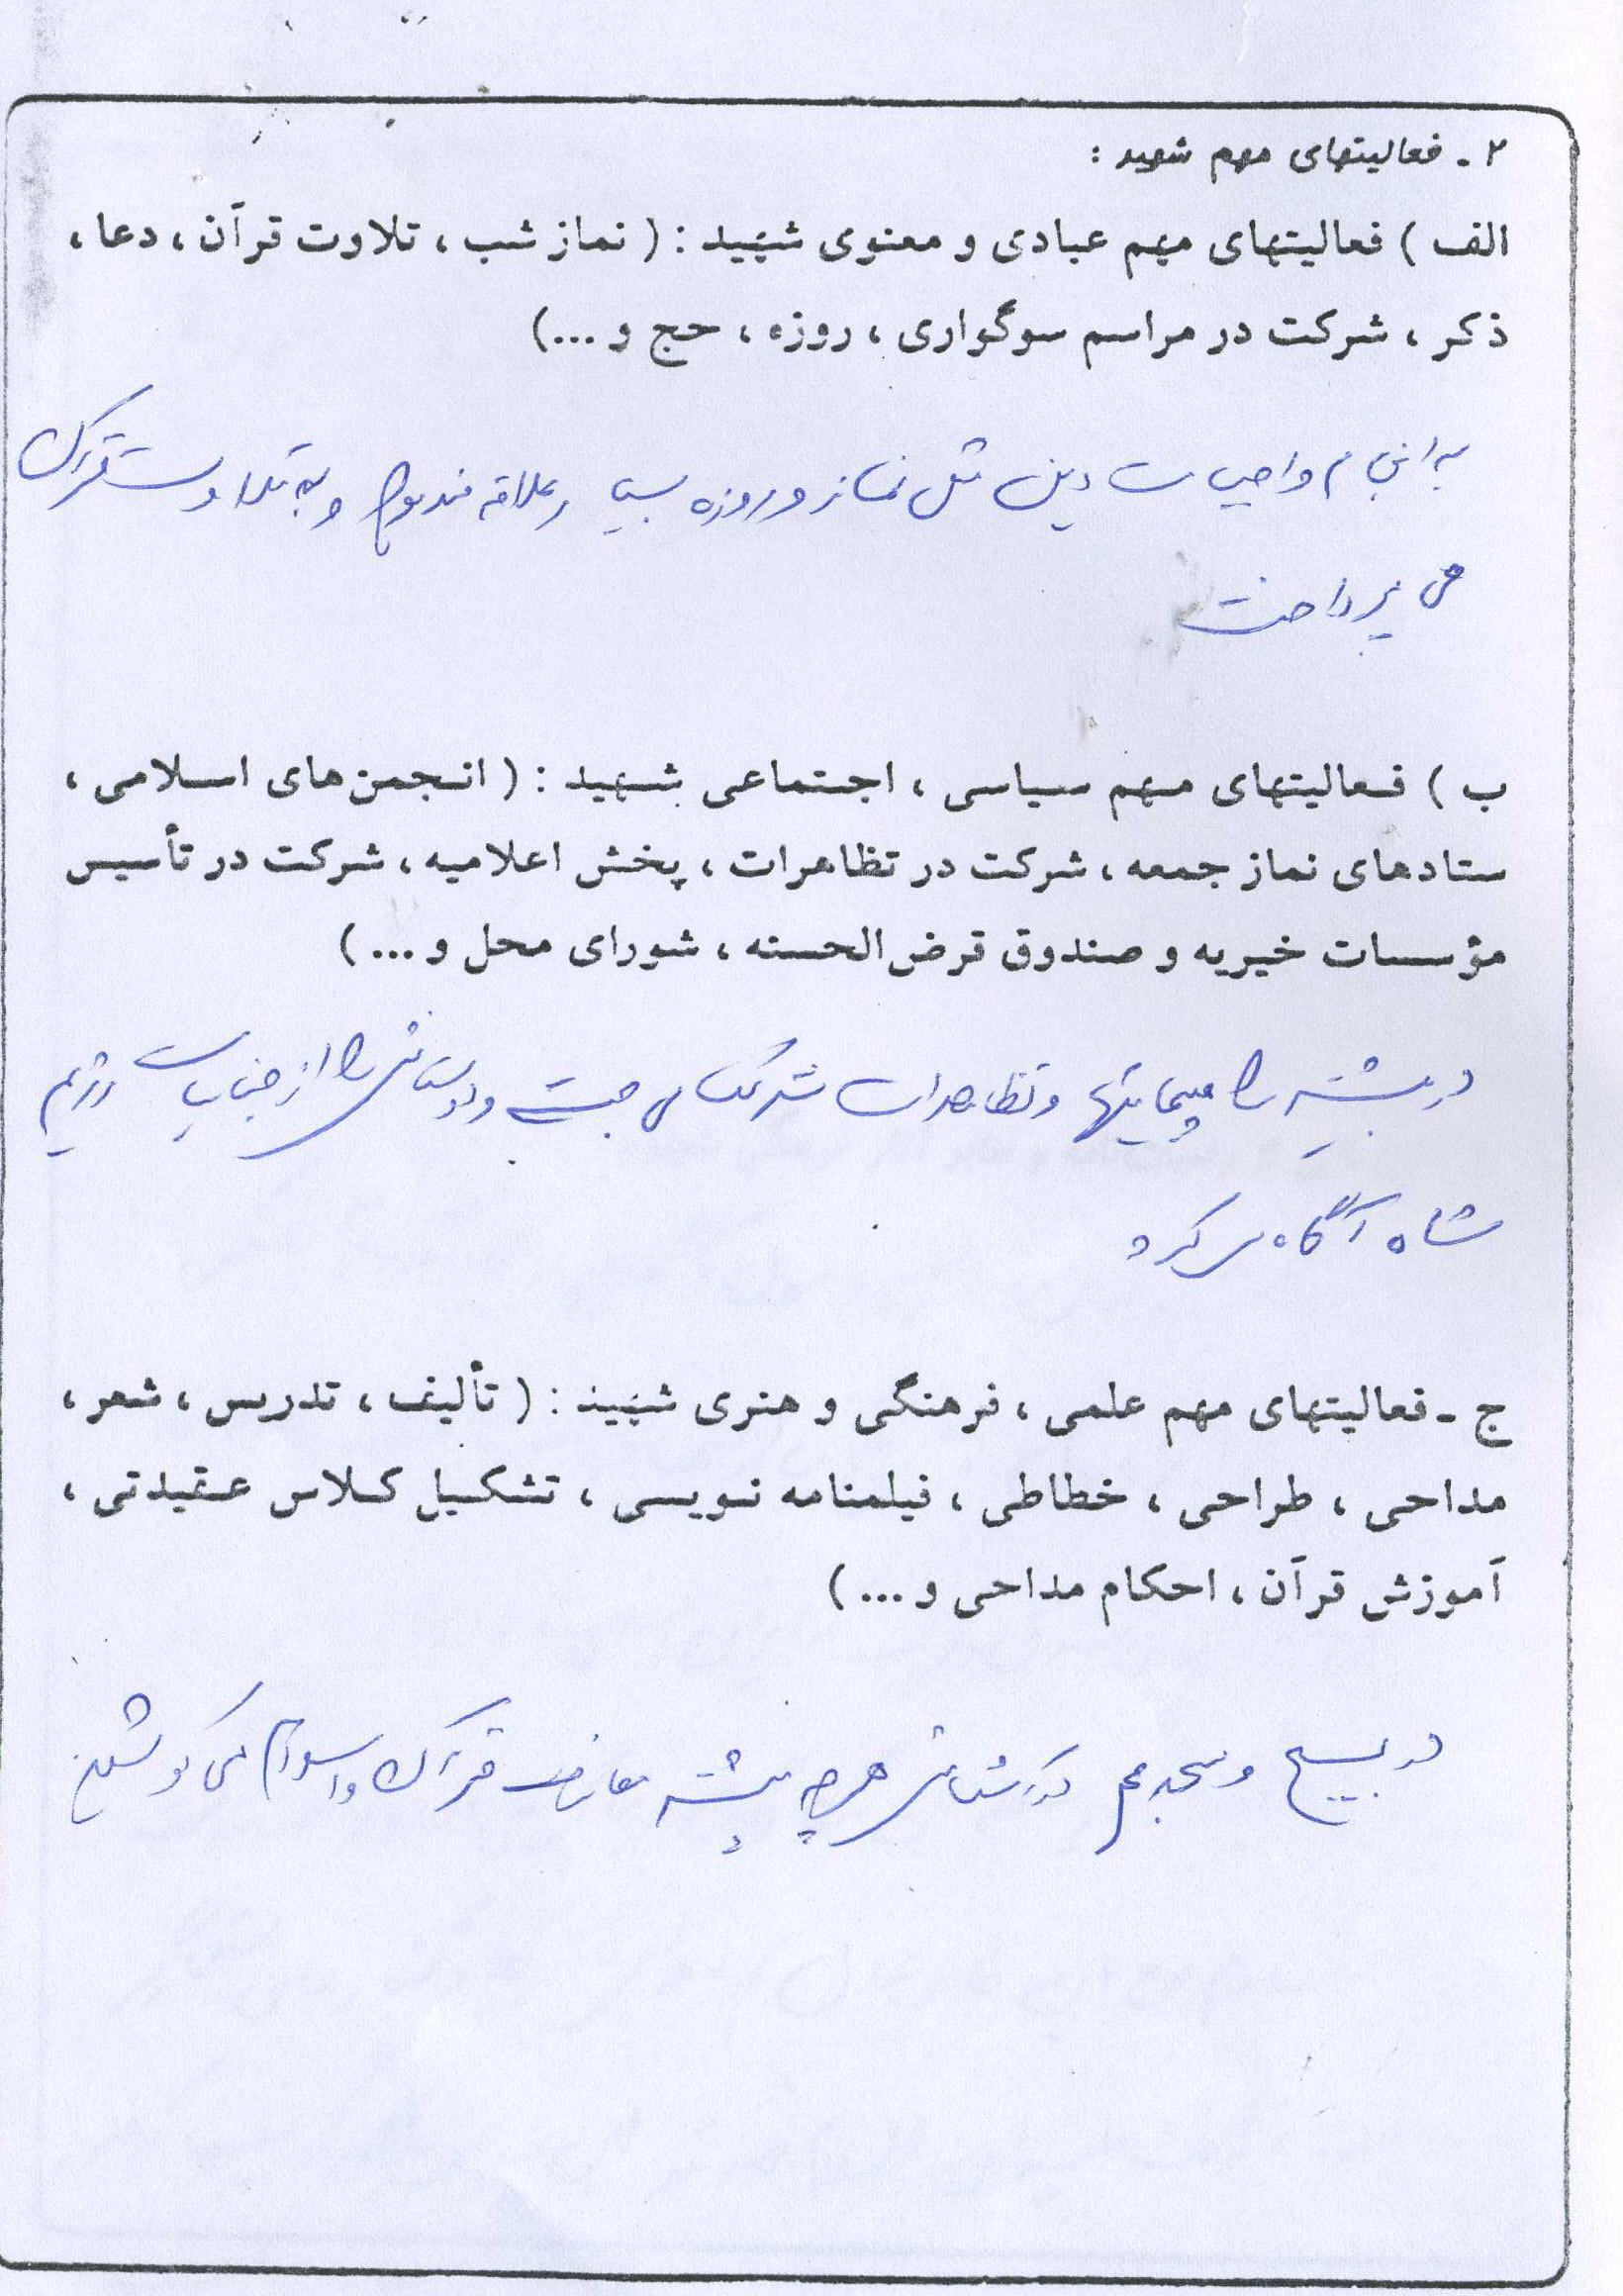 ۲ ـ فعالیتهای مهم شهید :
الف ) فعالیتهای مهم عبادی و معنوی شهید : ( نماز شب ، تلاوت قرآن ، دعا ،
ذکر ، شرکت در مراسم سوگواری ، روزه ، حج و ...)
به انجام واجبات دینی مثل نماز و روزه بسیار علاقه مند بود و به تلاوت قرآن
می پرداخت
ب ) فعالیتهای مهم سیاسی ، اجتماعی شهید : ( انجمن‌های اسلامی ،
ستادهای نماز جمعه ، شرکت در تظاهرات ، پخش اعلامیه ، شرکت در تأسیس
مؤسسات خیریه و صندوق قرض‌الحسنه ، شورای محل و ... )
در بیشتر راهپیمایی‌ها و تظاهرات شرکت می جست و دوستانش را از جنایات رژیم
شاه آگاه می کرد
ج ـ فعالیتهای مهم علمی ، فرهنگی و هنری شهید : ( تألیف ، تدریس ، شعر ،
مداحی ، طراحی ، خطاطی ، فیلمنامه نویسی ، تشکیل کلاس عقیدتی ،
آموزش قرآن ، احکام مداحی و ... )
در بسیج و مسجد هم هر چه بیشتر معارف قرآن و اسلام می کوشید